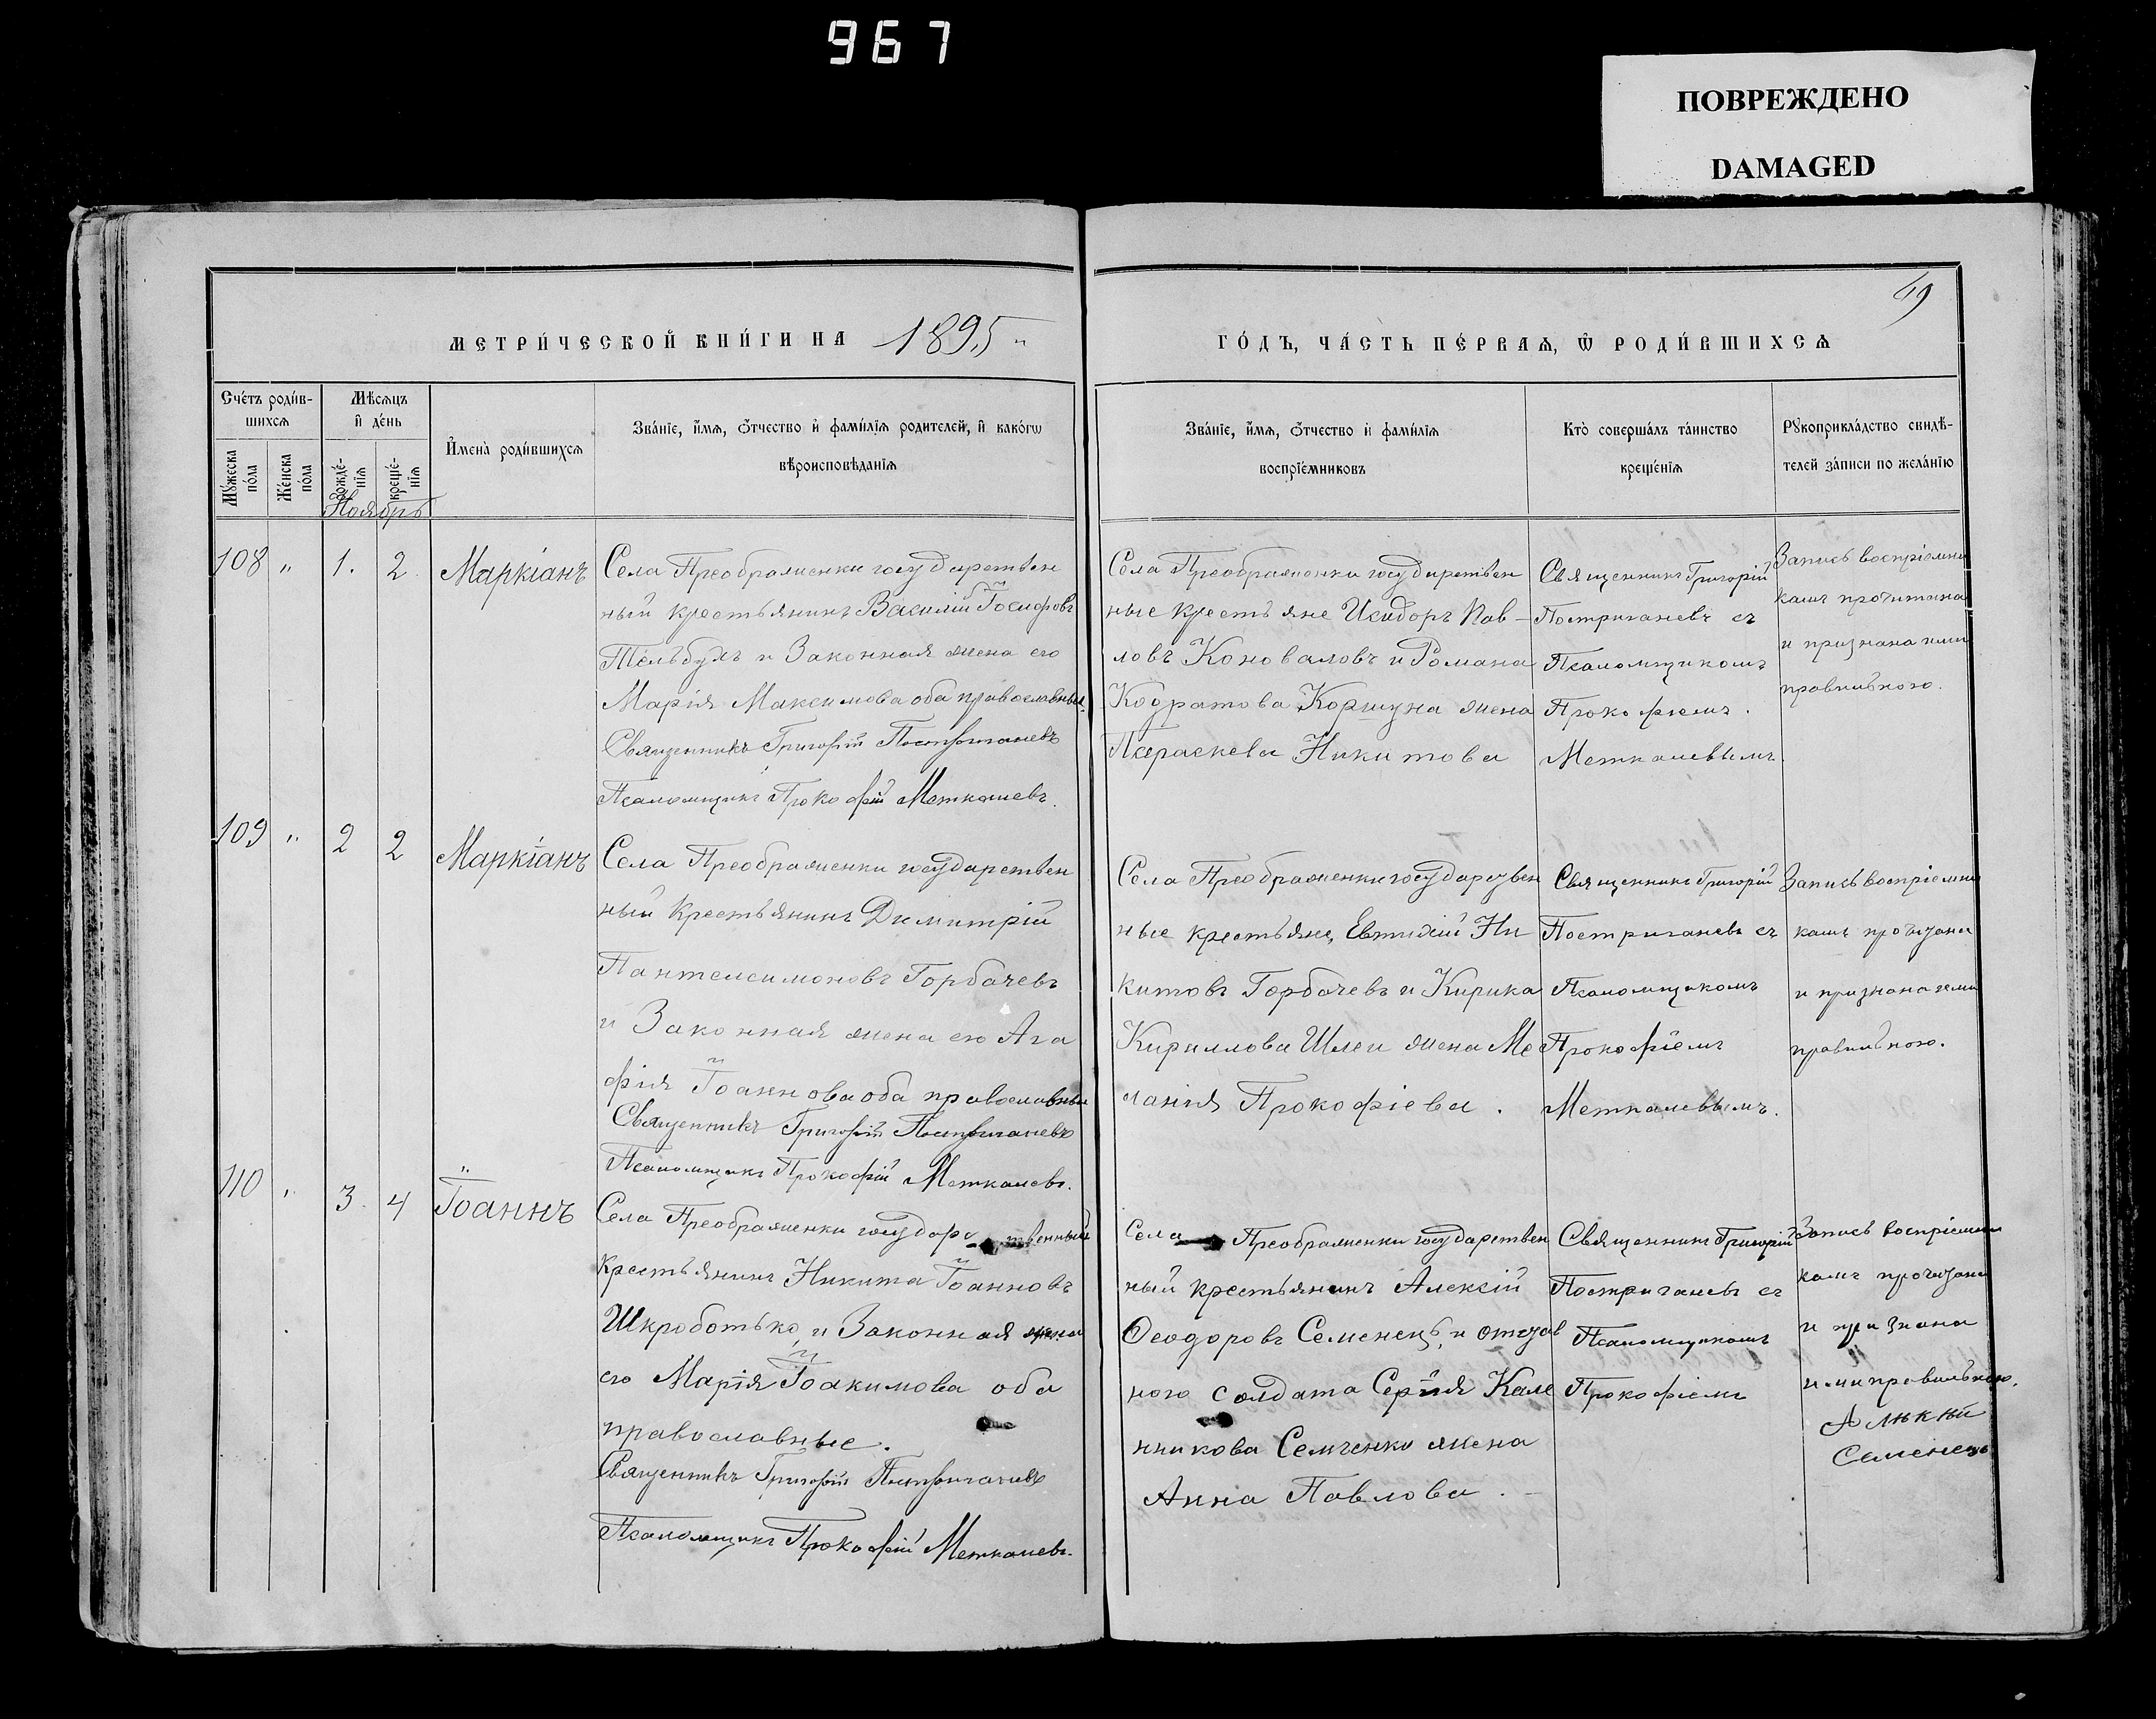 967
ПОВРЕЖДЕНО
DAMAGED
69
МЕТРИ́ЧЕСКОЙ КНИ́ГИ НА 1895
ГО́ДЪ, ЧА́СТЬ ПЕ́РВАЯ, Ѿ РОДИ́ВШИХСѦ
Сче́тъ роди́в-
шихсѧ
Мꙋ́жеска
по́ла
Же́нска
по́ла
Мѣ́сѧцъ
и҆ де́нь
рожде́-
нїѧ
креще́-
нїѧ
Ноябрь
И҆мена̀ роди́вшихсѧ
Зва́нїе, и҆́мѧ, ѻ҆́тчество и҆ фами́лїѧ роди́телей, и҆ како́гѡ
вѣроисповѣ́данїѧ
Зва́нїе, и҆́мѧ, ѻ҆́тчество и҆ фами́лїѧ
воспрїе́мниковъ
Кто̀ соверша́лъ та́инство
креще́нїѧ
Рꙋкоприкла́дство свидѣ́-
телей за́писи по жела́нїю
108 " 1. 2 Маркіанъ
Села Преображенки государствен
ный крестьянинъ Василій Іосифовъ
и Законная жена его
Марія Максимова оба православные.
Священникъ Григорій Постригачевъ
Псаломщикъ Прокофій Меткалевъ.
Села Преображенки государствен
ные крестьяне Исидоръ Пав-
ловъ Коноваловъ и Романа
Кодратова Коршуна жена
Параскева Никитова
Священникъ Григорій
Постригачевъ съ
Псаломщикомъ
Прокофіемъ
Меткалевымъ.
Запись воспріемни
камъ прочитана
и признана ими
правильною.
109 " 2 2 Маркіанъ
Села Преображенки государствен
ный крестьянинъ Димитрій
Пантелеимоновъ Горбачевъ
и Законная жена его Ага
фія Іоаннова оба православные
Священникъ Григорій Постригачевъ
Псаломщикъ Прокофій Меткалевъ.
Села Преображенки государствен
ные крестьяне, Евтихій Ни
китовъ Горбачевъ и Кирика
Кириллова Шлеи жена Ме
ланія Прокофіева.
Священникъ Григорій
Постригачевъ съ
Псаломщикомъ
Прокофіемъ
Меткалевымъ.
Запись воспріемни
камъ прочитана
и признана ими
правильною.
110 " 3. 4 Іоаннъ
Села Преображенки государственный
крестьянинъ Никита Іоанновъ
Шкроботько, и Законная жена
его Марія Іоакимова оба
православные.
Священникъ Григорій Постригачевъ
Псаломщикъ Прокофій Меткалевъ.
Села Преображенки государствен
ный крестьянинъ Алексій
Ѳеодоровъ Семенецъ, и отстав
ного солдата Сергія Кале
нникова Семченко жена
Анна Павлова.
Священникъ Григорій
Постригачевъ съ
Псаломщикомъ
Прокофіемъ
Запись воспріемни
камъ прочитана
и признана
ими правильною.
Семенецъ